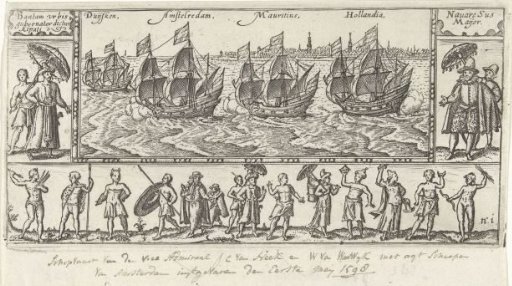 Bantam urbis
gubernator
Duÿfken.
Amstelredam.
Mauritius.
Hollandia.
Nauarc: Sus
Maior.
n. 1
Schipvaart van de vice Admiraal J C van Neck en W van Warwyk met agt Scheepen
van Amsterdam uitgevaren den Eerste May 1598